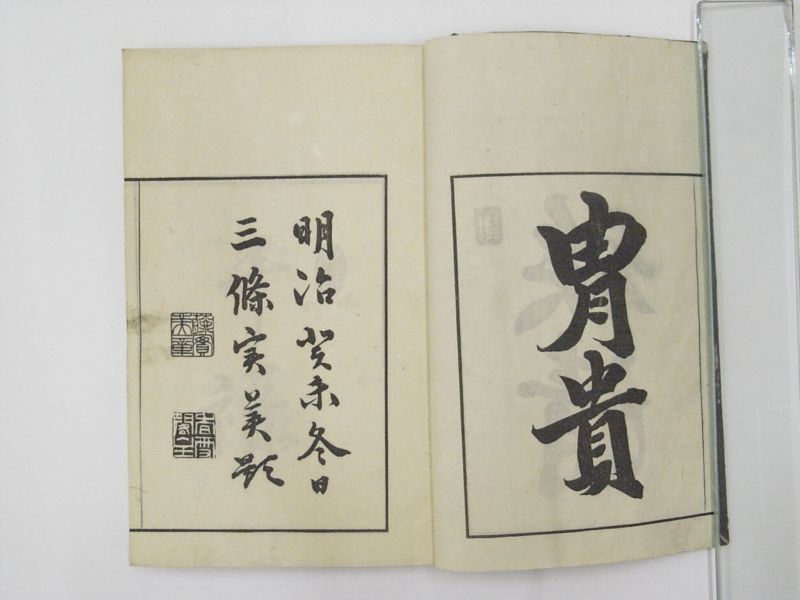 胄貴
明治癸未冬日
三條実美題